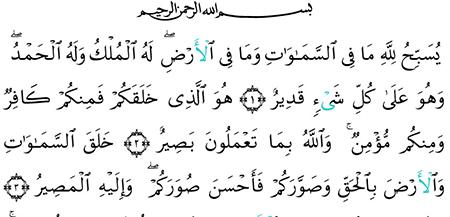 بسم الله الرحمن الرحيم
يُسَبِّحُ لِلَّهِ مَا فِى ٱلسَّمَـٰوَٰتِ وَمَا فِى ٱلْأَرْضِ ۖ لَهُ ٱلْمُلْكُ وَلَهُ ٱلْحَمْدُ ۖ
وَهُوَ عَلَىٰ كُلِّ شَىْءٍ قَدِيرٌ ﴿١﴾ هُوَ ٱلَّذِى خَلَقَكُمْ فَمِنكُمْ كَافِرٌ
وَمِنكُم مُّؤْمِنٌ ۚ وَٱللَّهُ بِمَا تَعْمَلُونَ بَصِيرٌ ﴿٢﴾ خَلَقَ ٱلسَّمَـٰوَٰتِ
وَٱلْأَرْضَ بِٱلْحَقِّ وَصَوَّرَكُمْ فَأَحْسَنَ صُوَرَكُمْ ۖ وَإِلَيْهِ ٱلْمَصِيرُ ﴿٣﴾